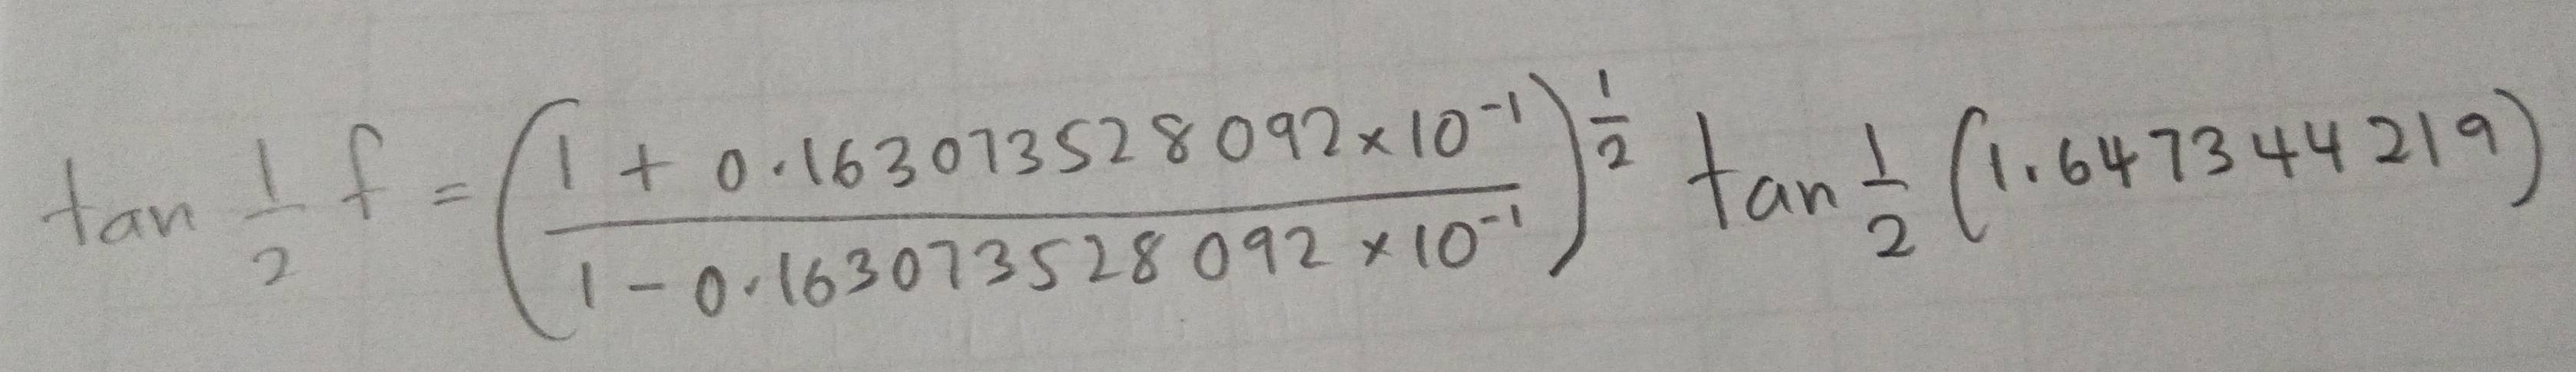 tan 1/2 f = ((1 + 0.163073528092 × 10^-1)/(1 - 0.163073528092 × 10^-1))^1/2 tan 1/2 (1.647344219)